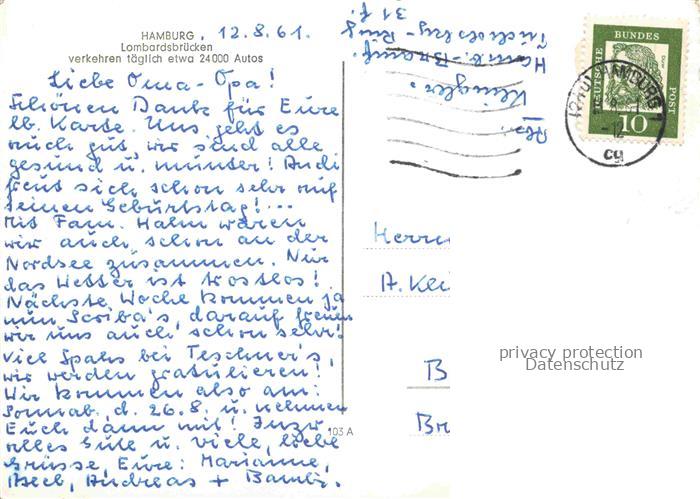 HAMBURG, 12.8.61.
Lombardsbrücken
verkehren täglich etwa 24000 Autos
Liebe Oma - Opa!
Schönen Dank für Eure
lb. Karte. Uns geht es
auch gut, wir sind alle
gesund u. munter! Andi
freut sich schon sehr auf
seinen Geburtstag!...
Mit Fam. Halm waren
wir auch schon an der
Nordsee zusammen. Nur
das Wetter ist trostlos!
Nächste Woche kommen ja
nun Scriba's, darauf freuen
wir uns auch schon sehr!
Viel Spahs bei Teschner's,
wir werden gratulieren!
Wir kommen also am:
Sonnab. d. 26.8. u. nehmen
Euch dann mit! Inzw.
alles Gute u. viele, liebe
Grüsse, Eure: Marianne,
Andreas + Bambi.
103 A
Abs.:
Klingler,
Hamb.-Bramf.
Ring
31 f.
DEUTSCHE BUNDESPOST
Dürer
10
HAMBURG 1
-12
cy
Herrn
A. Kli
B
Br
privacy protection
Datenschutz